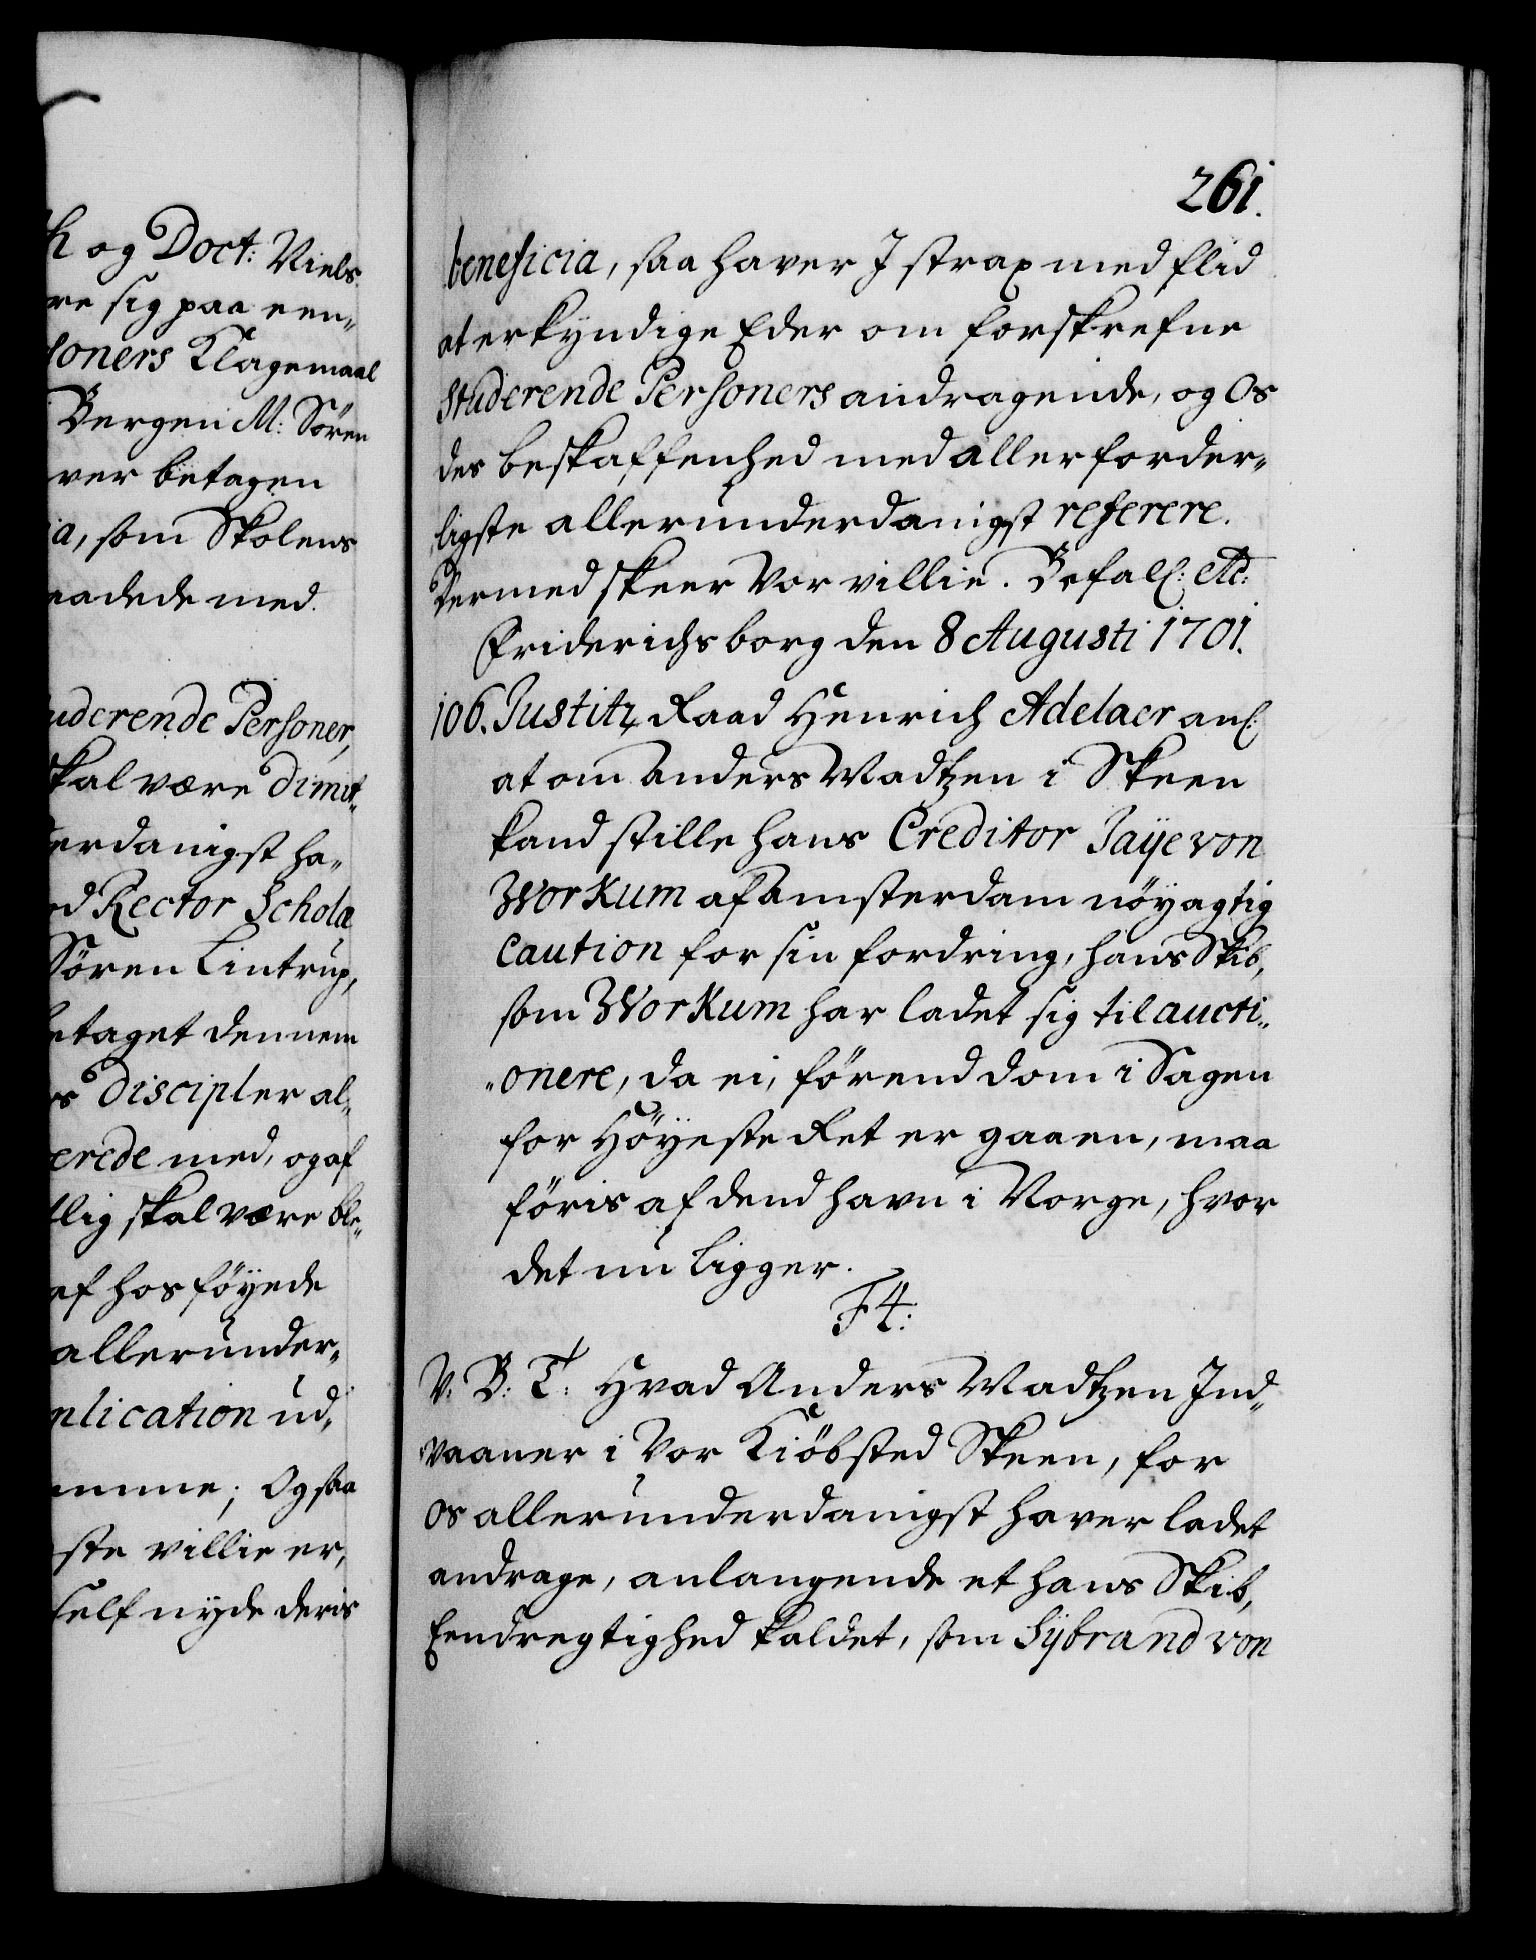 h og Doct: Niels
re sig paa een„
soners Klagemaal
Bergen M: Sören
ver betagen
ia, som Skolens
aadede med.
uderende Personer,
skal være dimit„
erdanigst ha„
d Rector Schola
Sören Lintrup,
etaget dennem
s discipler al„
erede med, og af
tlig skal være ble„
ef hos föyede
allerunder„
plication ud„
emme; Og saa
ste villie er,
self nyde deris
261.
beneficia, saa haver I strax med flid
at erkyndige Eder om forskrefne
Studerende Personers andragende, og Os
des beskaffenhed med allerforder„
ligste allerunderdanigst referere.
Dermed skeer Vor villie. Befal: etc:
Friderichsborg den 8 Augusti 1701.
106. Justitz Raad Henrich Adelaer anl:
at om Anders Madtzen i Skeen
kand stille hans Creditor Jaÿe von
Workum af Amsterdam nöyagtig
Caution for sin fordring, hans Skib,
som Workum har ladet sig til aucti„
„onere, da ei, förend dom i Sagen
for Höyeste Ret er gaaen, maa
föris af dend havn i Norge, hvor
det nu ligger.
F4:
V: B: T: Hvad Anders Madtzen Ind„
vaaner i Vor Kiöbsted Skeen, for
os allerunderdanigst haver ladet
andrage, anlangende et hans Skib,
Eendregtighed kaldet, som Sÿbrand von